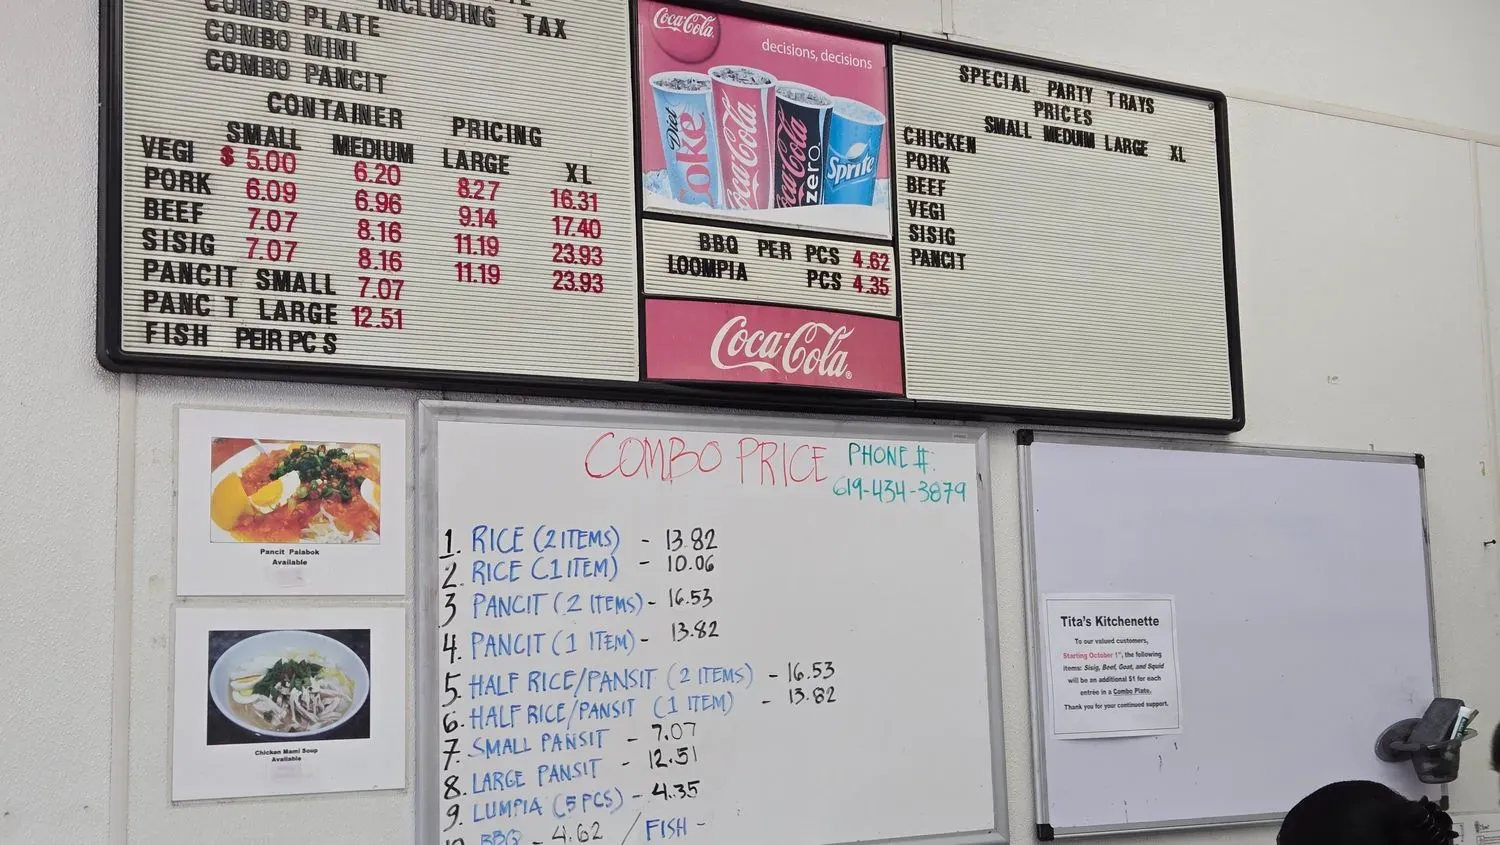 INCLUDING TAX
COMBO PLATE
COMBO MINI
COMBO PANCIT
CONTAINER PRICING
SMALL MEDIUM LARGE XL
VEGI $ 5.00 6.20 8.27 16.31
PORK 6.09 6.96 9.14 17.40
BEEF 7.07 8.16 11.19 23.93
SISIG 7.07 8.16 11.19 23.93
PANCIT SMALL 7.07
PANC T LARGE 12.51
FISH PEIR PC S
Coca-Cola
decisions, decisions
Diet Coke
Coca-Cola
Coca-Cola zero
Sprite
BBQ PER PCS 4.62
LOOMPIA PCS 4.35
Coca-Cola®
SPECIAL PARTY T RAYS
PRICES
SMALL MEDIUM LARGE XL
CHICKEN
PORK
BEEF
VEGI
SISIG
PANCIT
Pancit Palabok
Available
Chicken Mami Soup
Available
COMBO PRICE
PHONE #:
619-434-3879
1. RICE (2 ITEMS) - 13.82
2. RICE (1 ITEM) - 10.06
3 PANCIT (2 ITEMS) - 16.53
4. PANCIT (1 ITEM) - 13.82
5. HALF RICE/PANSIT (2 ITEMS) - 16.53
6. HALF RICE/PANSIT (1 ITEM) - 13.82
7. SMALL PANSIT - 7.07
8. LARGE PANSIT - 12.51
9. LUMPIA (5 PCS) - 4.35
10 BBQ - 4.62 / FISH -
Tita's Kitchenette
To our valued customers,
Starting October 1st, the following
items: Sisig, Beef, Goat, and Squid
will be an additional $1 for each
entrée in a Combo Plate.
Thank you for your continued support.